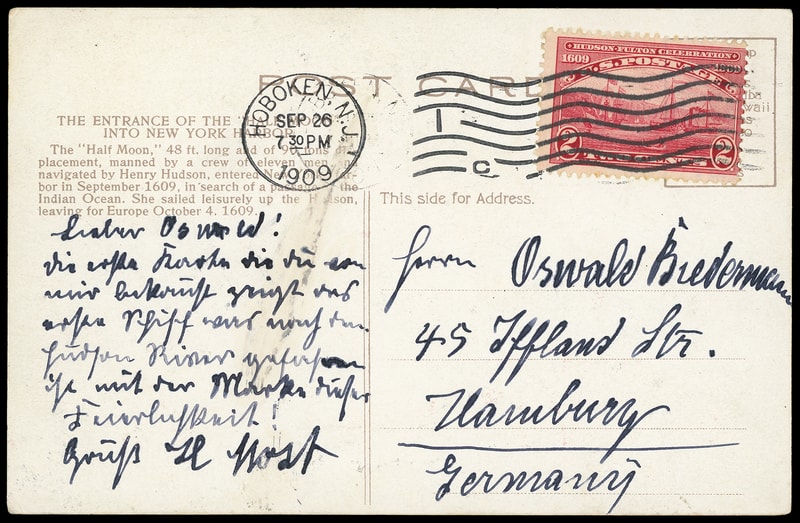 POST CARD
THE ENTRANCE OF THE
INTO NEW YORK HARBOR
The "Half Moon," 48 ft. long and of 90 tons
placement, manned by a crew of eleven men,
navigated by Henry Hudson, entered New
bor in September 1609, in search of a the
Indian Ocean. She sailed leisurely up the Hudson,
leaving for Europe October 4, 1609.
HOBOKEN, N.J.
SEP 26
7 30 PM
1909
1
C
HUDSON-FULTON CELEBRATION
1609 1909
U.S. POSTAGE
2 TWO CENTS 2
This side for Address.
Lieber Oswald!
die erste Karte die du von
mir bekommst zeigt das
erste Schiff was nach dem
Hudson River gefahren
ist mit der Marke dieser
Feierlichkeit!
Gruß H
Herrn Oswald Biedermann
45 Iffland Str.
Hamburg
Germany